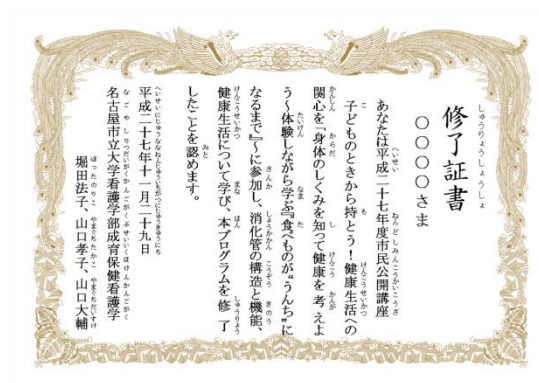 修了証書
〇〇〇〇さま
あなたは平成二十七年度市民公開講座
子どものときから持とう！健康生活への
関心を「身体のしくみを知って健康を考えよ
う～体験しながら学ぶ『食べものが“うんち”に
なるまで』～に参加し、消化管の構造と機能、
健康生活について学び、本プログラムを修了
したことを認めます。
平成二十七年十一月二十九日
名古屋市立大学看護学部成育保健看護学
堀田法子、山口孝子、山口大輔